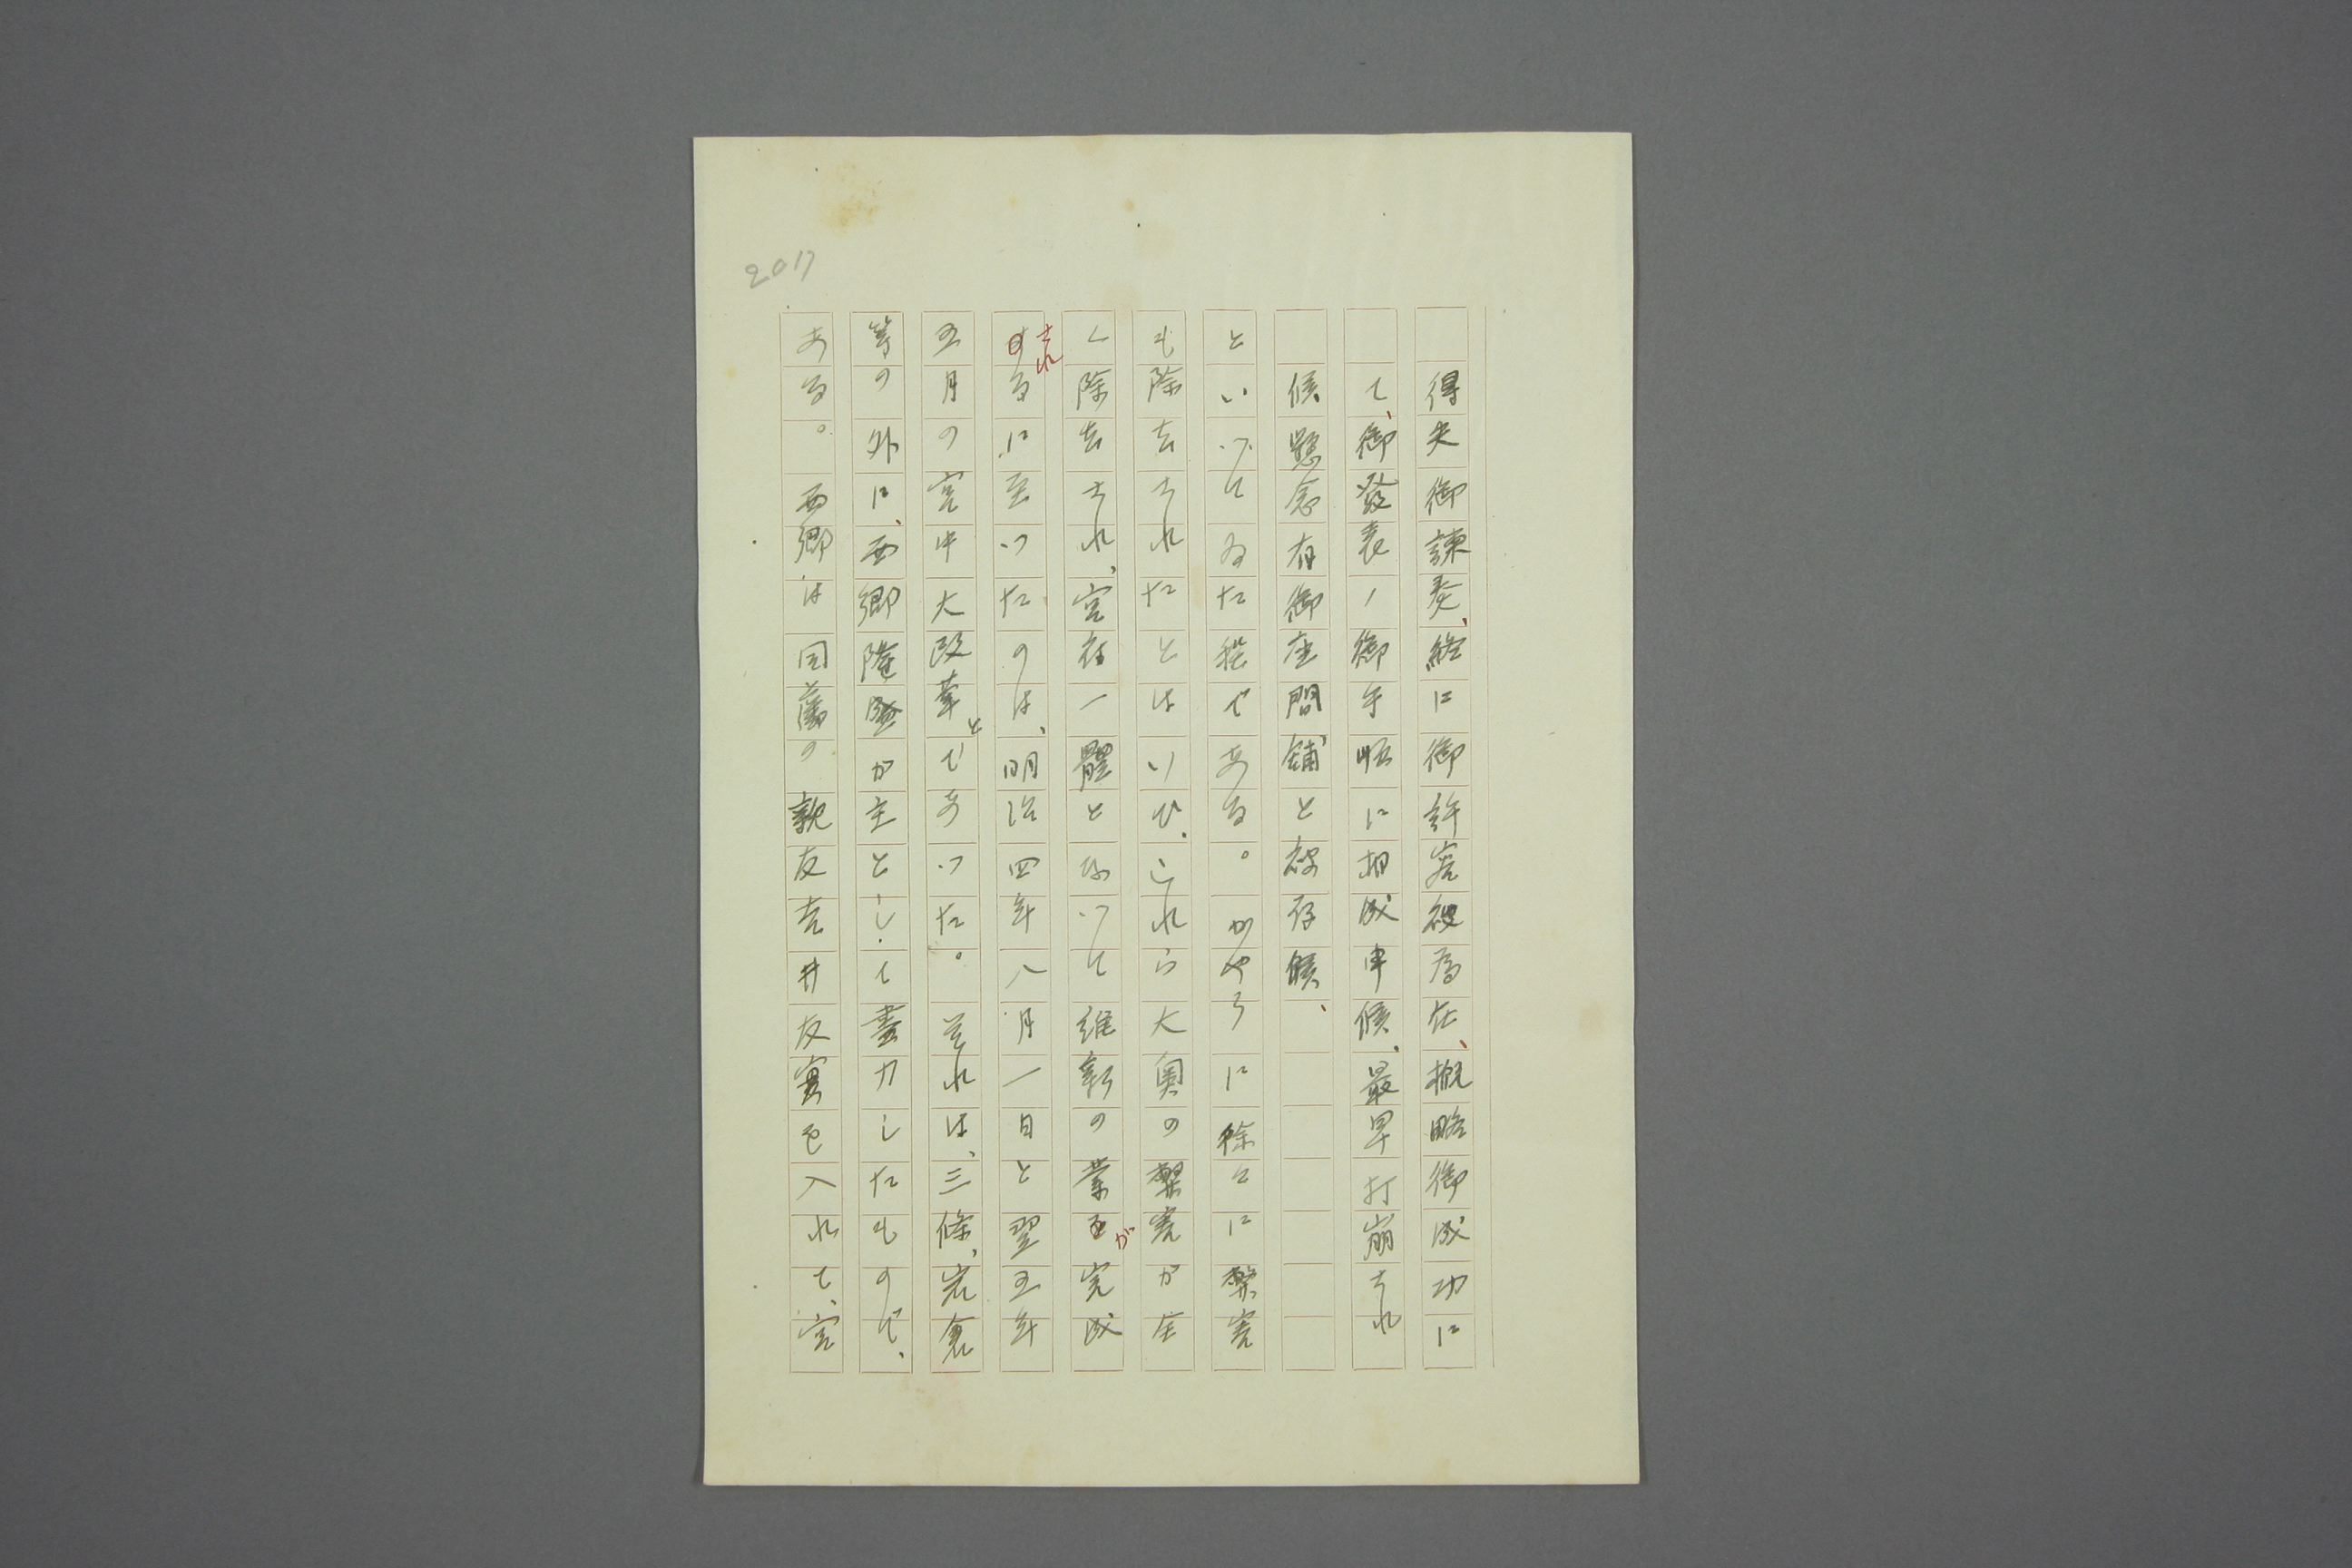 2017
得失御諫奏、終に御許容被爲在、概略御成功に
て、御發表ノ御手順に相成申候、最早打崩され
候懸念有御座間鋪と被存候、
といつてゐた程である。かやうに徐々に弊害
も除去されたとはいひ、これら大奥の弊害が全
く除去され、宮府一體となつて維新の業が完成
されるに至つたのは、明治四年八月一日と翌五年
五月の宮中大改革とであつた。それは、三條、岩倉
等の外に、西郷隆盛が主として盡力したもので、
ある。西郷は同藩の親友吉井友實を入れて、宮